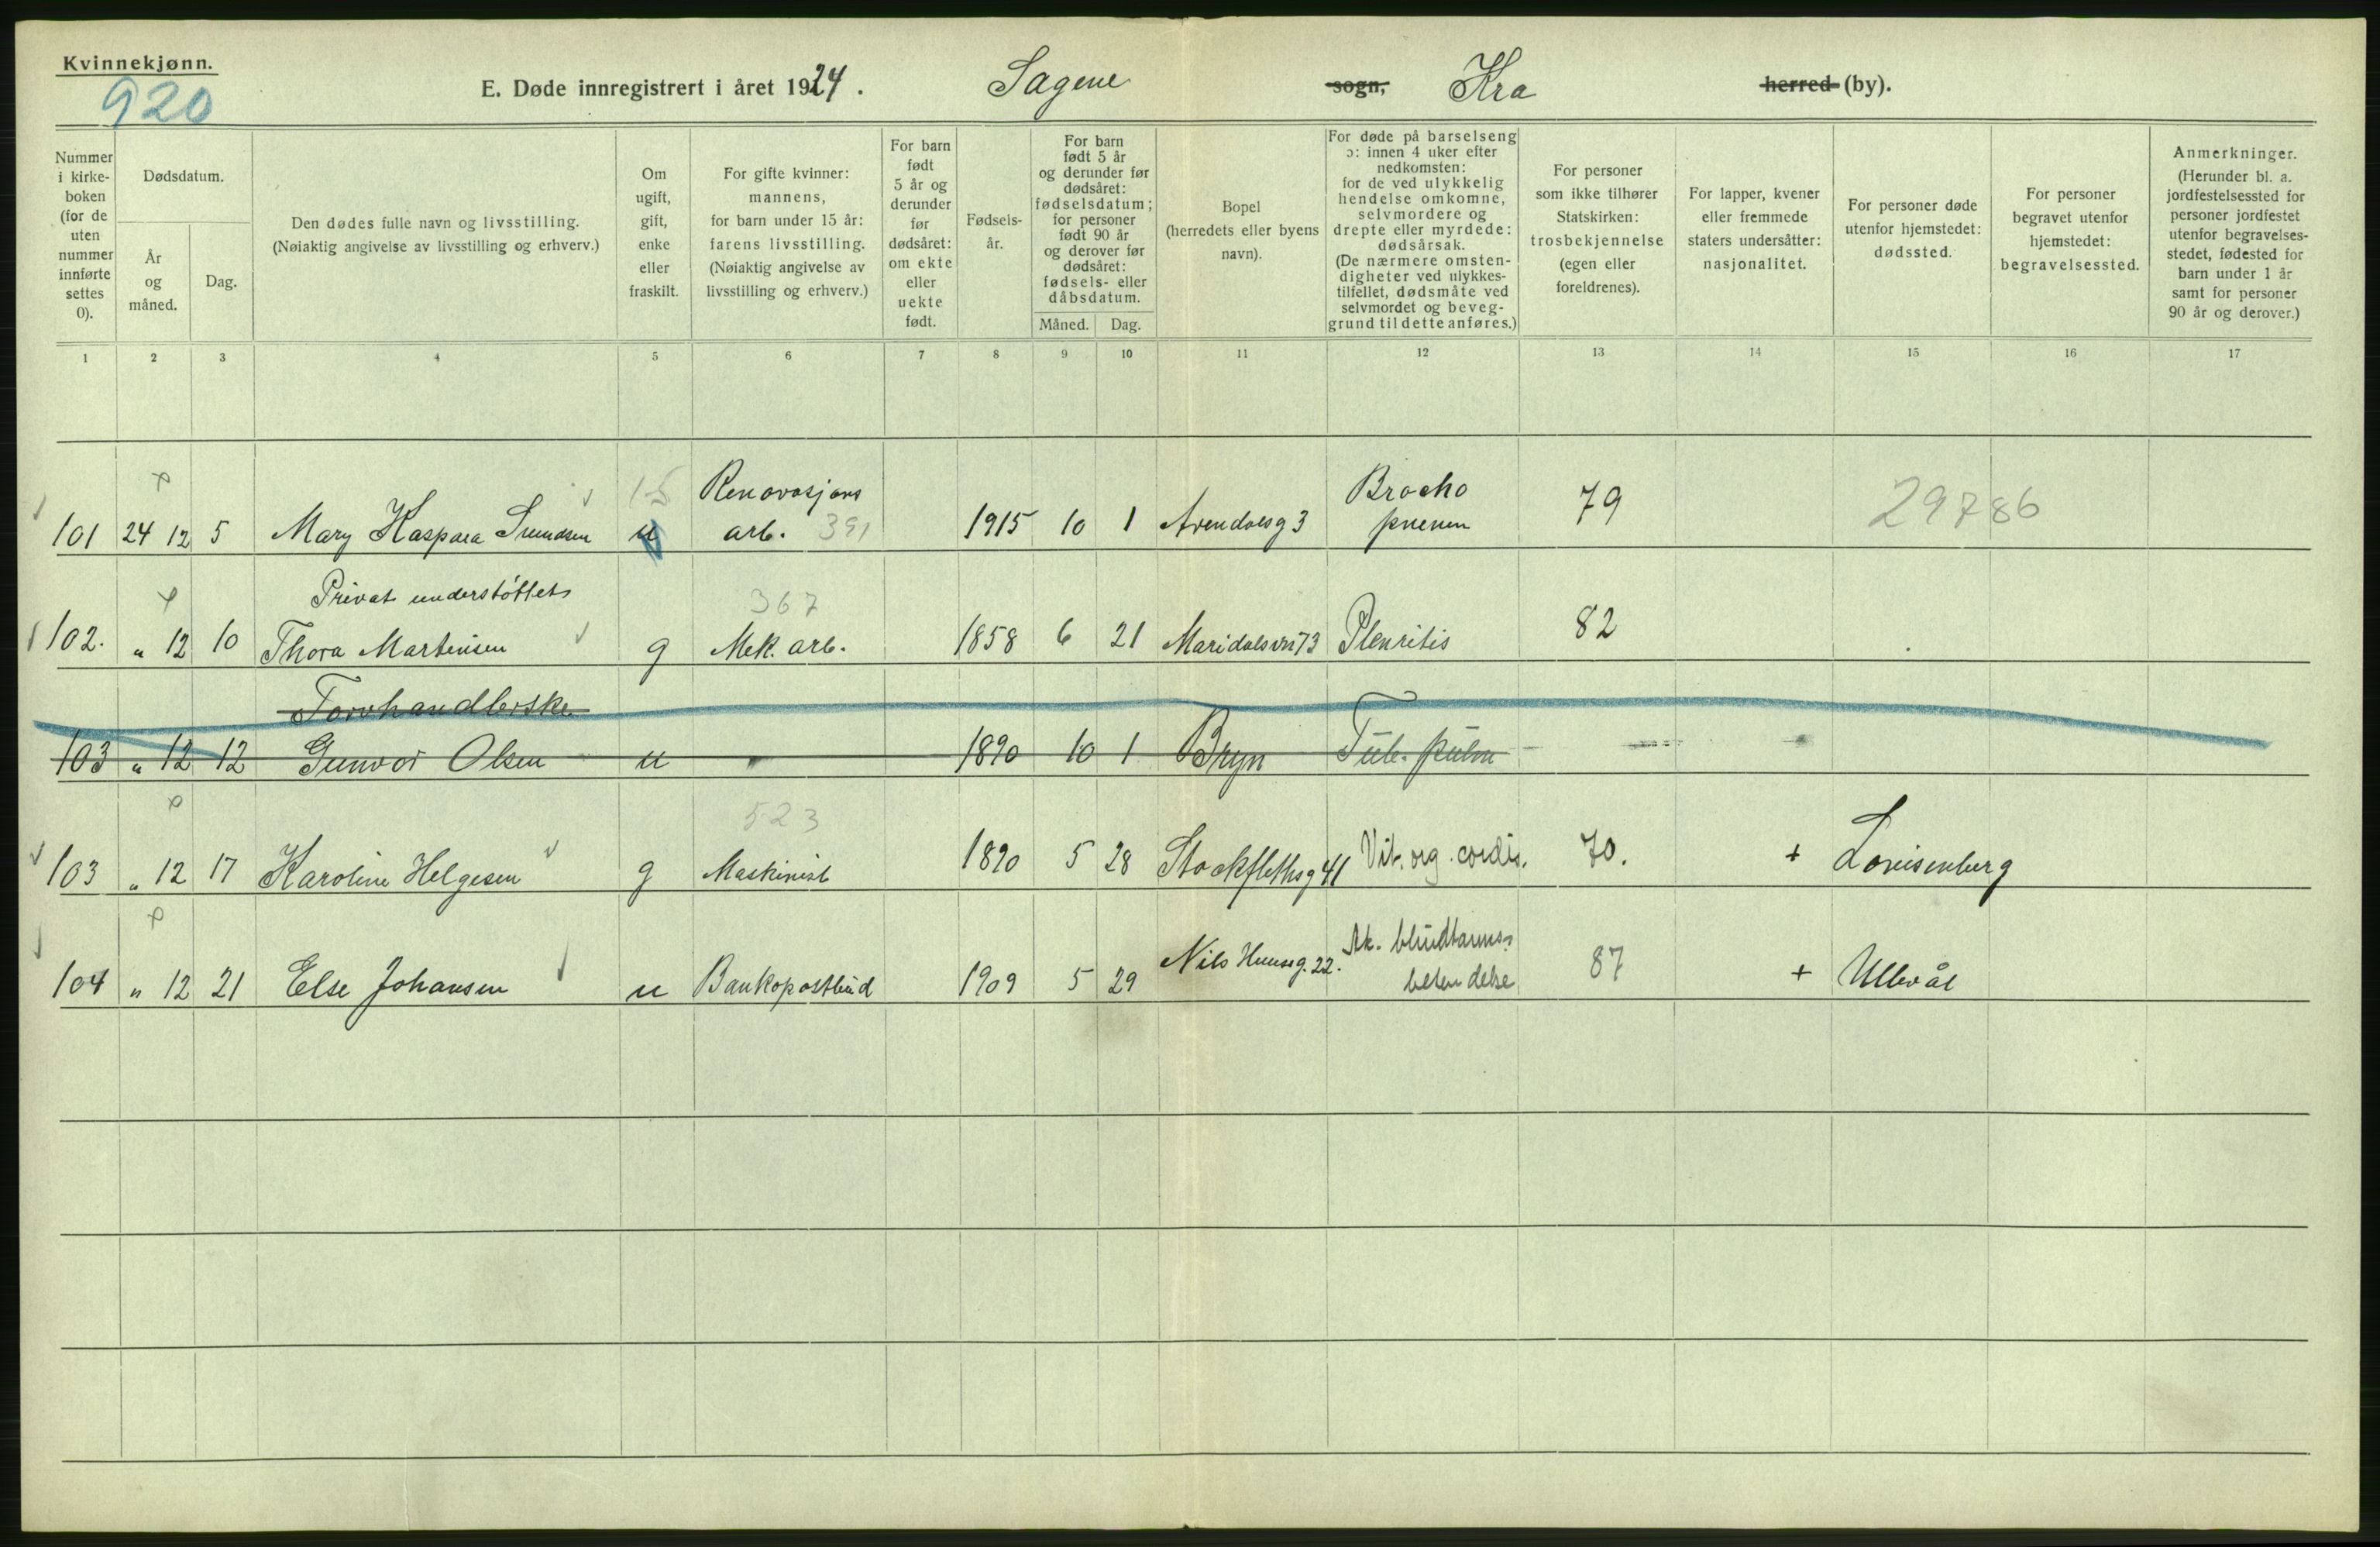 Kvinnekjønn.
920
E. Døde innregistrert i året 1924.
Sagene sogn, Kra herred (by).
Nummer i kirkeboken (for de uten nummer innførte settes 0).
Dødsdatum.
År og måned.
Dag.
Den dødes fulle navn og livsstilling.
(Nøiaktig angivelse av livsstilling og erhverv.)
Om ugift, gift, enke eller fraskilt.
For gifte kvinner: mannens, for barn under 15 år: farens livsstilling.
(Nøiaktig angivelse av livsstilling og erhverv.)
For barn født 5 år og derunder før dødsåret: om ekte eller uekte født.
Fødsels-år.
For barn født 5 år og derunder før dødsåret: fødselsdatum; for personer født 90 år og derover før dødsåret: fødsels- eller dåbsdatum.
Måned.
Dag.
Bopel
(herredets eller byens navn).
For døde på barselseng ɔ: innen 4 uker efter nedkomsten: for de ved ulykkelig hendelse omkomne, selvmordere og drepte eller myrdede: dødsårsak.
(De nærmere omstendigheter ved ulykkestilfellet, dødsmåte ved selvmordet og beveggrund til dette anføres.)
For personer som ikke tilhører Statskirken: trosbekjennelse (egen eller foreldrenes).
For lapper, kvener eller fremmede staters undersåtter: nasjonalitet.
For personer døde utenfor hjemstedet: dødssted.
For personer begravet utenfor hjemstedet: begravelsessted.
Anmerkninger.
(Herunder bl. a. jordfestelsessted for personer jordfestet utenfor begravelsesstedet, fødested for barn under 1 år samt for personer 90 år og derover.)
1 2 3 4 5 6 7 8 9 10 11 12 13 14 15 16 17
Renovasjons Brocho
101 24 12 5 Mary Kaspara u arb. 391 1915 10 1 Arendalsg 3 pneuen 79 29786
Privat understøttet 367
102. " 12 10 Thora Martinsen g Mek. arb. 1858 6 21 Maridalsvn 73 Pleuritis 82
Torvhandlerske
103 " 12 12 Gunvor Olsen u 1890 10 1 Bryn Tub. pulm
523
103 " 12 17 Karoline Helgesen g Maskinist 1890 5 28 Stockflethsg 41 Vit. org. cordis. 70. + Lovisenberg
Ak. blindtarms-
104 " 12 21 Else Johansen u Bankopostbud 1909 5 29 Nils Huusg. 22. betendelse 87 + Ullevål